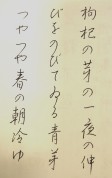 枸杞の芽の一夜の伸
びをのびてゐる青芽
つやつや春の朝冷ゆ